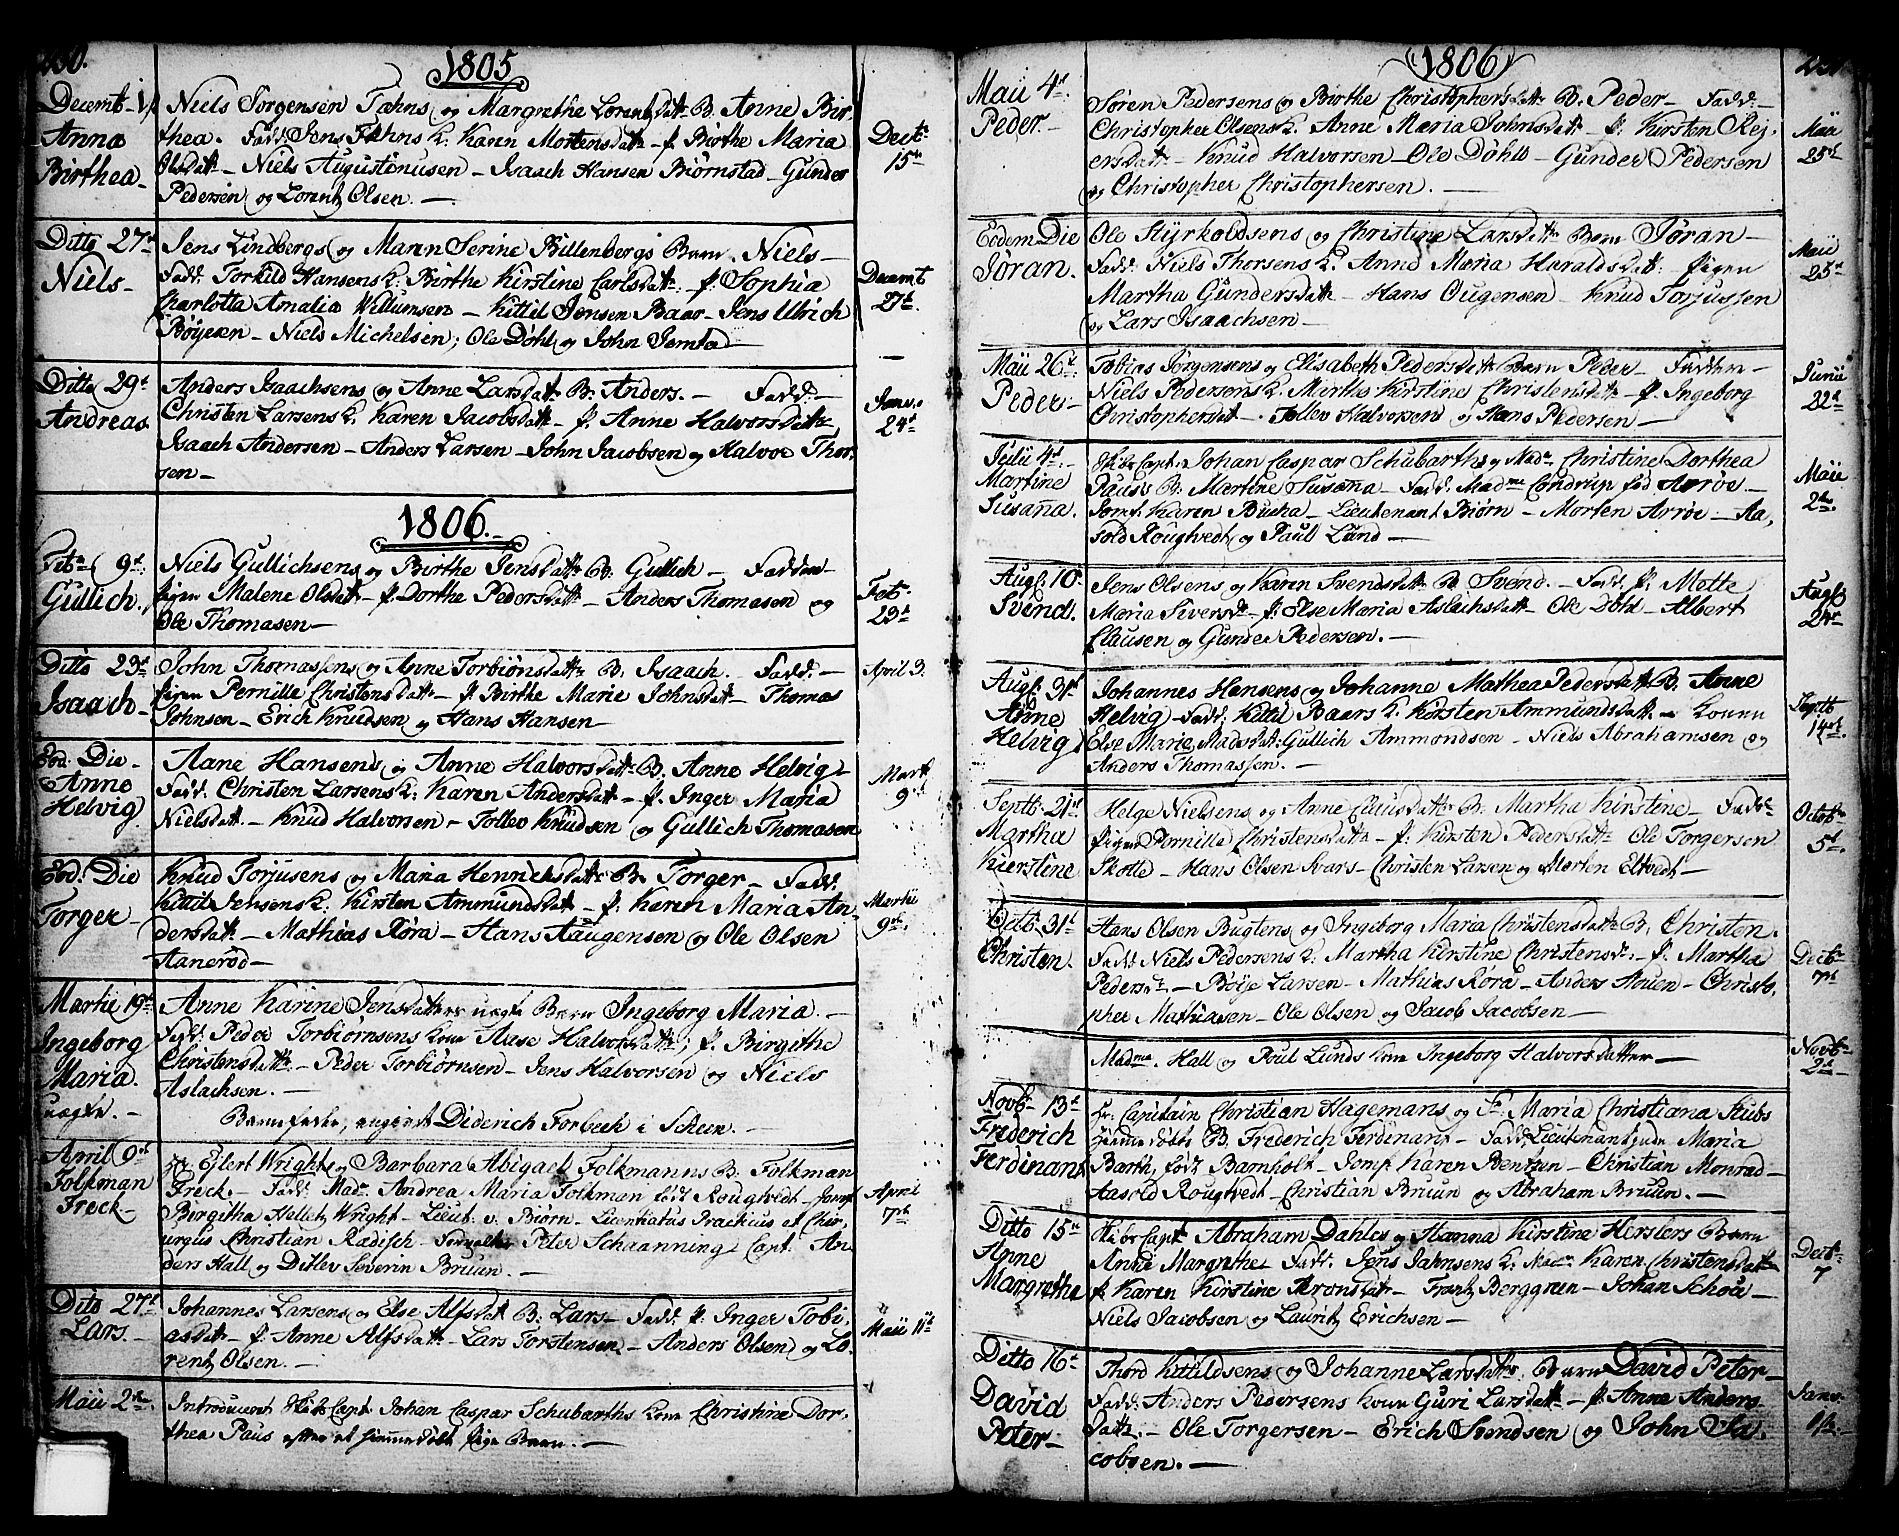 1805
Decemb 1
Anna
Birthea
Niels Sørgensen Fæhns og Margrethe Lorentzdatt B. Anne Bir-
thea. Fadd. Jens Fæhns K. Karen Mortensdatt – p. Birthe Maria
Olsdatt – Niels Augustinusen – Isaach Hansen Biørnstad – Gunder
Pedersen og Lorentz Olsen. –
Decbr
15de
Ditto 27d
Niels
Jens Lindbergs og Maren Serine Billenbergs Barn. Niels –
Fadd. Torkild Hansens K. Birthe Kirstine Carlsdatt – p. Sophia
Charlotta Amalia Willumsen – Kittil Jensen Baar – Jens Ulrich
Bøyesen – Niels Michelsen; Ole Døhl og John Jemtad
Decemb
27d.
Ditto 29d
Andreas
Anders Isaachsens og Anne Larsdatt B. Anders. – Fadd. –
Christen Larsens K. Karen Jacobsdatt – p. Anne Halvorsdatt
Isaach Andersen – Anders Larsen – John Jacobsen og Halvor Thor-
sen –
Janv.
24d
1806.
Febr 9d.
Gullich.
Niels Gullichsens og Birthe Jensdatt B. Gullich – Faddere
pigen Malene Olsdatt – p. Dorthe Pedersdatt – Anders Thomasen og
Ole Thomasen –
Feb.
23d
Ditto 23d
Isaach
John Thomassens og Anne Torbiønsdatt B. Isaach. Fadd. –
pigen Pernille Christensdatt – p. Birthe Marie Johnsdatt – Thomas
Johnsen – Erich Knudsen og Hans Hansen –
April 3.
Eod. Die
Anne
Helvig
Aane Hansens og Anne Halvorsdatt B. Anne Helvig –
Fadd. Christen Larsens K. Karen Andersdatt – p. Inger Maria
Nielsdatt. – Knud Halvorsen – Tollev Knudsen og Gullich Thomasen
Marti
9d
Eod. Die
Torger
Knud Torjusens og Maria Henrichsdatt B. Torger – Fadd.
Kittil Jensens K. Kirsten Ammundsdatt – p. Karen Maria An-
dersdatt – Mathias Røra – Hans Aaugensen og Ole Olsen
Aanerød –
Martii
9de.
Martii 19d
Ingeborg
Maria.
uægte. –
Anne Karine Jensdatters uægte Barn Ingeborg Maria. –
Fadd. Peder Torbiørnsens kone Aase Halvorsdatt; p. Birgithe
Christensdatt – Peder Torbiørnsen – Jens Halvorsen og Niels
Aslachsen. –
Barnefader, angivet Diderich Forbech i Scheen. –
April 9d
Folkman
Freck
Hr. Ejlert Wright og Barbara Abigael Folkmanns B. Folkman
Freck. – Fadd. Mad. Andrea Maria Folkman født Rougtvedt – Jomf
Borgitha Hellet Wright – Lieut. v. Biørn – Licentiatus Practicus et Chir-
urgus Christian Radisch – Forvalter Peter Schaanning Capt. An-
ders Hall og Ditlev Severin Bruun. –
April
7de
Dito 27d
Lars.
Johannes Larsens og Else Alfsdatt B. Lars – Fadd. p. Inger Tobi-
asdatt – p. Anne Alfsdatt – Lars Torstensen – Anders Olsen og Lo-
rentz Olsen. –
Maii 11d
Maii 2d.
Introduceret Skibs Capt Johan Caspar Schubarths kone Christine Dor-
thea Paus efter et hiemmedøbt pige Barn. –
1806
Maii 4d.
Peder. –
Søren Pedersens og Birthe Christophersdatt B. Peder – Fadd. –
Christopher Olsens K. Anne Maria Johnsdatt – p. Kirsten Rej-
ersdatt – Knud Halvorsen – Ole Døhl – Gunder Pedersen
og Christopher Christophersen. –
Maii
25d
Eodem Die
Jøran.
Ole Styrkoldsens og Christine Larsdatt Barn Jøran –
Fadd. Niels Thorsens K. Anne Maria Haraldsdatt – pigen
Martha Gundersdatt – Hans Ougensen – Knud Torjussen
og Lars Isaachsen –
Maii
25d
Maii 26d
Peder
Tobias Jørgensens og Elisabeth Pedersdatt Barn Peder – Faddere –
Niels Pedersens K. Marthe Kirstine Christensdatt – p. Ingeborg
Christophersdatt – Tollev Halvorsen og Hans Pedersen –
Junii
22d
Julii 4d. –
Martine
Susana.
Skibs Capt. Johan Caspar Schubarths og Mad. Christine Dorthea
Paus B. Martine Susana – Fadd. Madme Condrup fød Arrøe –
Jomf. Karen Bucka – Lieutenant Biørn – Morten Arrøe – Aa-
sold Rougtvedt og Paull Lund –
Maii
2de.
Augl. 10.
Svend.
Jens Olsens og Karen Svendsdatt B. Svend. – Fadd. p. Mette
Maria Siversdt – p. Else Maria Aslachsdatt – Ole Døhl – Albert
Clausen og Gunder Pedersen. –
Augl
24d
Augl. 31d
Anne
Helvig
Johannes Hansens og Johanne Mathea Pedersdatt B. Anne
Helvig – Fadd. Kittil Baars K. Kirsten Ammundsdatt – Konen
Else Marie Madsdatt Gullich Ammondsen – Niels Abrahamsen og
Anders Thomassen. –
Septb
14d.
Septb. 21d
Martha
Kierstine
Helge Nielsens og Anne Clausdatt B. Martha Kirstine – Fadd
pigen Pernille Christensdatt – p. Kirsten Pedersdatt Ole Torgersen
Skotte – Hans Olsen Svars – Christen Larsen og Morten Eltvedt –
Octob
5d.
Octb. 31d
Christen.
Hans Olsen Bugtens og Ingeborg Maria Christensdatt B. Christen.
Fadd Niels Pedersens K. Martha Kirstine Christensdr. – p. Martha
Pedersdt – Bøije Larsen – Mathias Røra – Anders Houen – Christo-
pher Mathiasen – Ole Olsen og Jacob Jacobsen –
Decbr
7d
Madme. Hall og Poul Lunds kone Ingeborg Halvorsdatter –
Novbr
2d
Novb. 13d
Frederich
Ferdinant
Hr. Capitain Christian Hagemans og Fr. Maria Christiana Stubs
hiemmedøbte B. Frederich Ferdinant – Fadd. Lieutenant Maria
Barth, født Barnholt – Jomf. Karen Bentzen – Christian Monrad –
Aasold Rougtvedt – Christian Bruun og Abraham Bruun. –
Ditto 15d
Anne
Margrethe
Skibs Capt Abraham Dahls og Hanna Kirstine Herslers Barn
Anne Margrethe Fadd. Jens Jahnsens K. Mad. Karen Christensdatt
p. Karen Kirstine Aronsdatt – Frantz Berggren – Johan Schou –
Niels Jacobsen og Lauritz Erichsen –
Decb.
7
Ditto 16d
David
Peter
Thord Kittildsens og Johanne Larsdatt Barn David Peter –
Fadd. Anders Pedersens kone Guri Larsdatt – p. Anne Anders-
datt. – Ole Torgersen – Erich Svendsen og John Ja-
cobsen. –
Janv.